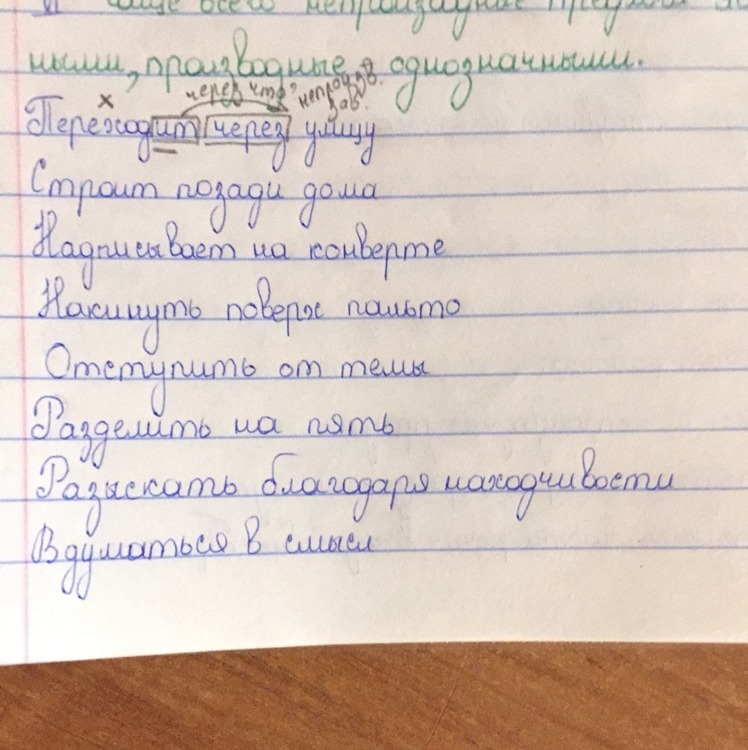 чаще всего непроизводные предлоги
ными, производные однозначными.
через что? непроизв.
х зав.
Переходит через улицу
Строит позади дома
Надписывает на конверте
Накинуть поверх пальто
Отступить от темы
Разделить на пять
Разыскать благодаря находчивости
Вдуматься в смысл